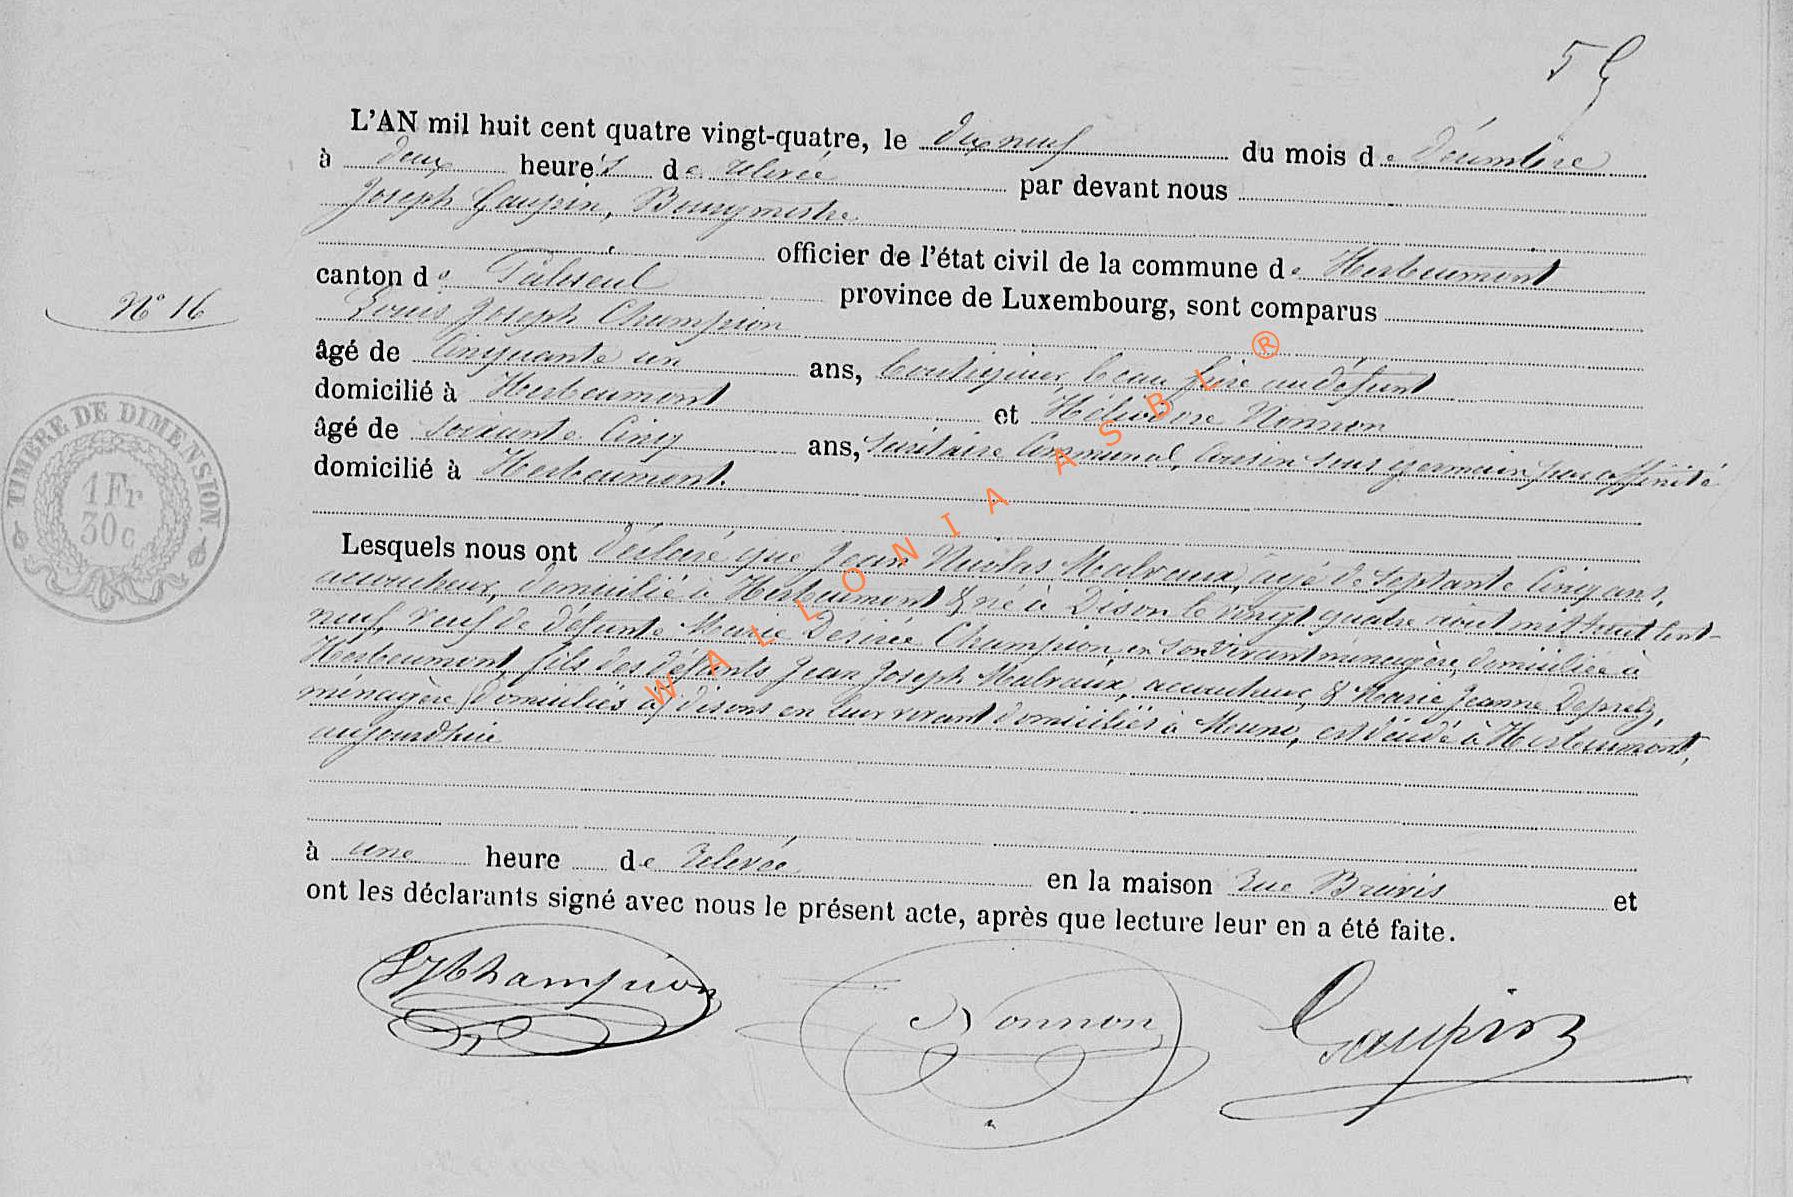 59
L'AN mil huit cent quatre vingt-quatre, le dix neuf du mois de décembre
à deux heures de relevée par devant nous
Joseph Gaupin, Bourgmestre
officier de l'état civil de la commune de Herbeumont
canton de Paliseul province de Luxembourg, sont comparus
N° 16
Louis Joseph Champion
âgé de cinquante un ans, boutiquier, beau frère au défunt
domicilié à Herbeumont et Héliodore Nonnon
âgé de soixante cinq ans, secrétaire communal, cousin sous germain par affinité
domicilié à Herbeumont.
TIMBRE DE DIMENSION
1 Fr
30 c
Lesquels nous ont déclaré que Jean Nicolas Malvaux, âgé de septante cinq ans,
accoucheur, domicilié à Herbeumont & né à Dison le vingt quatre août mil huit cent
neuf, veuf de défunte Marie Désirée Champion, en son vivant ménagère, domiciliée à
Herbeumont, fils des défunts Jean Joseph Malvaux, accoucheur, & Marie Jeanne Deprez,
ménagère, (domiciliés à) disons en leur vivant domiciliés à Muno, est décédé à Herbeumont,
aujourd'hui
à une heure de relevée en la maison rue et
ont les déclarants signé avec nous le présent acte, après que lecture leur en a été faite.
LJChampion Nonnon Gaupin
WALLONIA ASBL ®